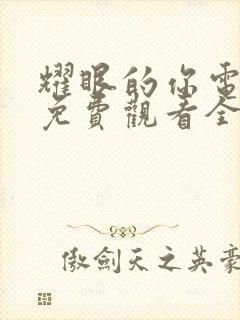 耀眼的你電
免費觀看全
傲劍天之英豪